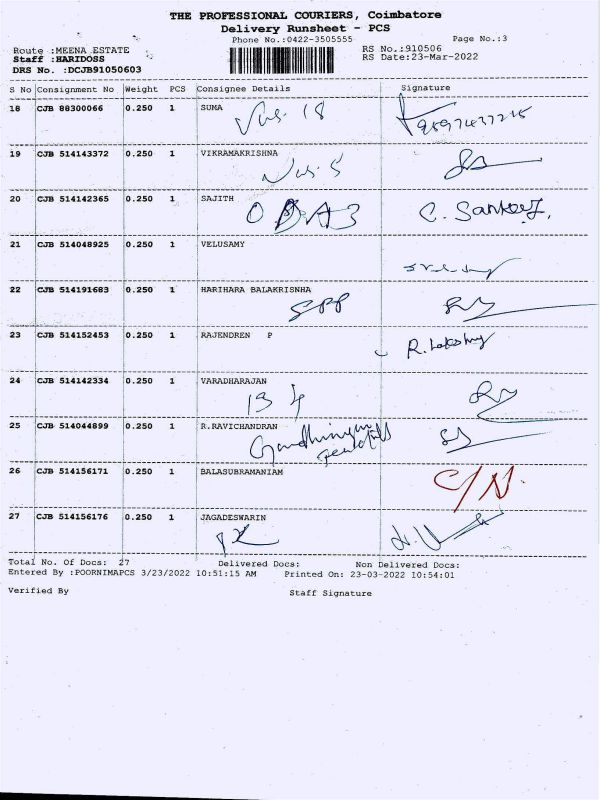 THE PROFESSIONAL COURIERS, Coimbatore
Delivery Runsheet - PCS
Phone No.:0422-3505555
Page No.:3
Route :MEENA ESTATE
RS No.:910506
Staff :HARIDOSS
RS Date:23-Mar-2022
DRS No. :DCJB91050603
S No Consignment No Weight PCS Consignee Details Signature
18 CJB 88300066 0.250 1 SUMA
18
19 CJB 514143372 0.250 1 VIKRAMAKRISHNA
20 CJB 514142365 0.250 1 SAJITH
21 CJB 514048925 0.250 1 VELUSAMY
22 CJB 514191683 0.250 1 HARIHARA BALAKRISNHA
23 CJB 514152453 0.250 1 RAJENDREN P
24 CJB 514142334 0.250 1 VARADHARAJAN
25 CJB 514044899 0.250 1 R.RAVICHANDRAN
26 CJB 514156171 0.250 1 BALASUBRAMANIAM
C/N.
27 CJB 514156176 0.250 1 JAGADESWARIN
Total No. Of Docs: 27 Delivered Docs: Non Delivered Docs:
Entered By :POORNIMAPCS 3/23/2022 10:51:15 AM Printed On: 23-03-2022 10:54:01
Verified By Staff Signature